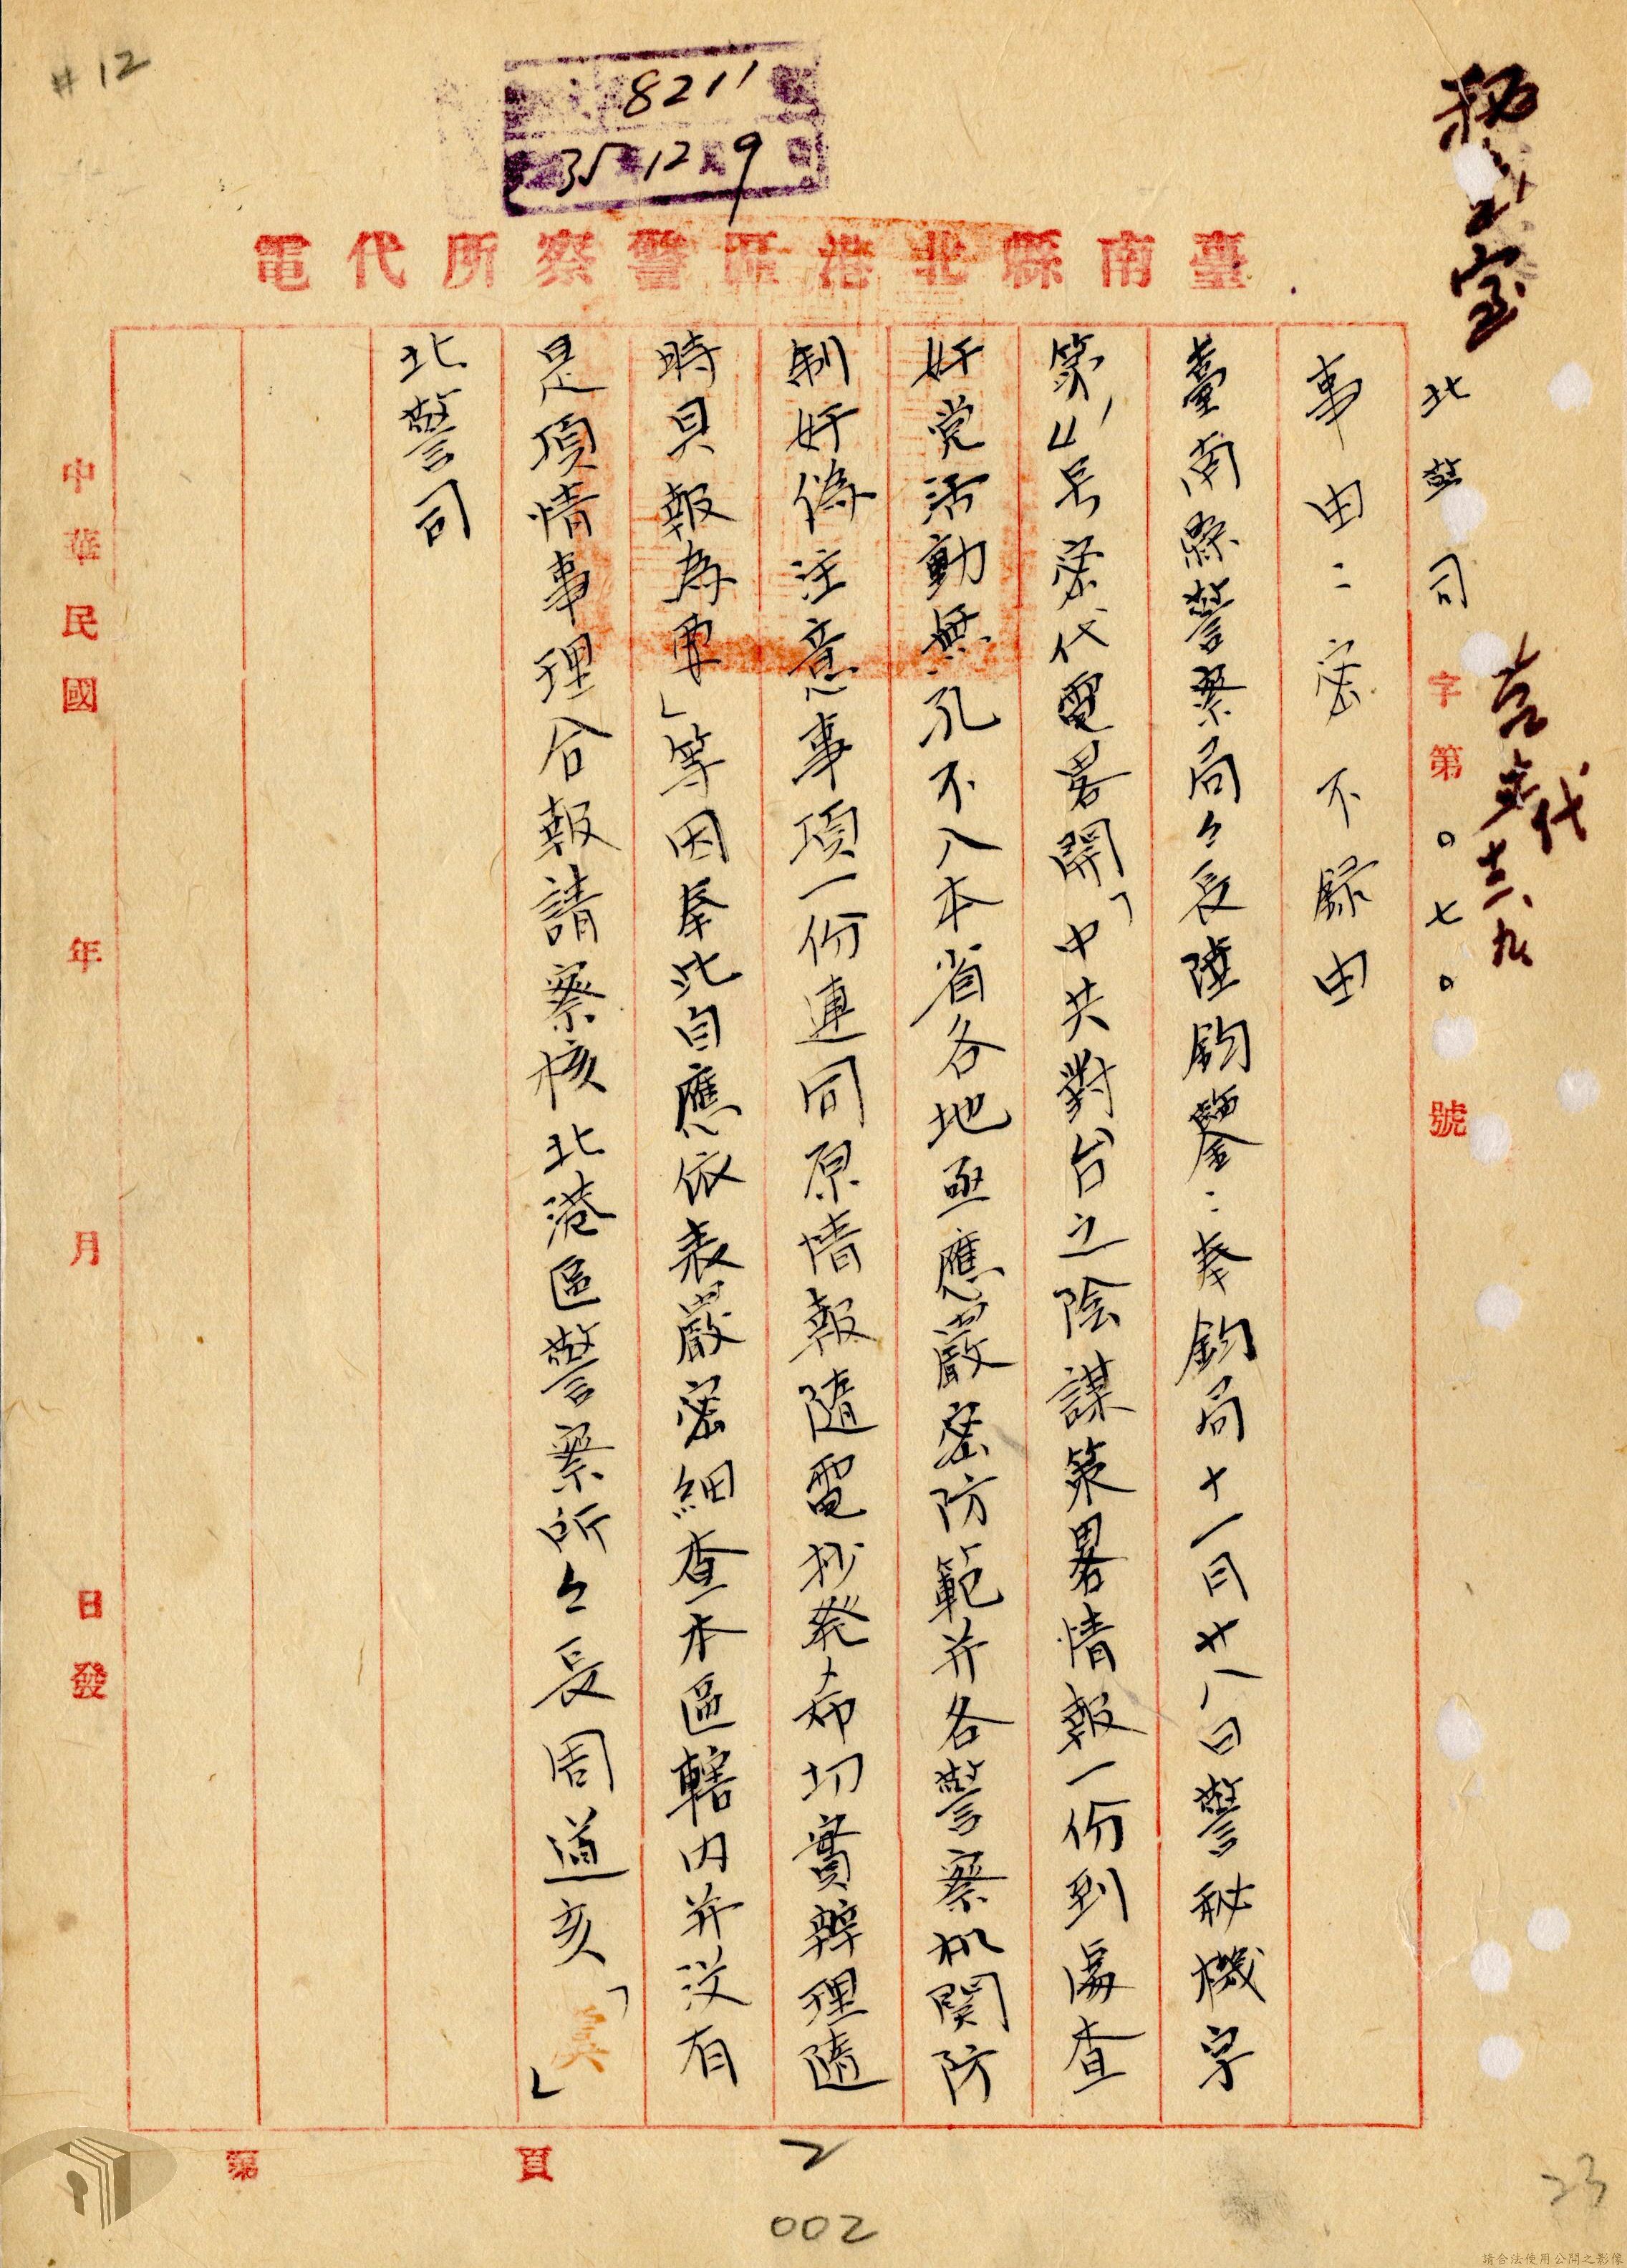 #12
8211
35 12 9
臺南縣北港區警察所代電
北警司字第〇七〇號
事由：密不錄由
臺南縣警察局々長陸鈞鑒：奉鈞局十一月廿八日警秘機字
第 號密代電畧開「中共對台之陰謀策畧情報一份到處查
奸党活動無孔不入本省各地亟應嚴密防範并各警察机関防
制奸偽注意事項一份連同原情報隨電抄発希切實辦理隨
時具報為要」等因奉此自應依表嚴密細查本區轄内并没有
是項情事理合報請察核北港區警察所々長周道亥「 」
北警司
中華民國 年 月 日發
第 頁
2
002
23
請合法使用公開之影像